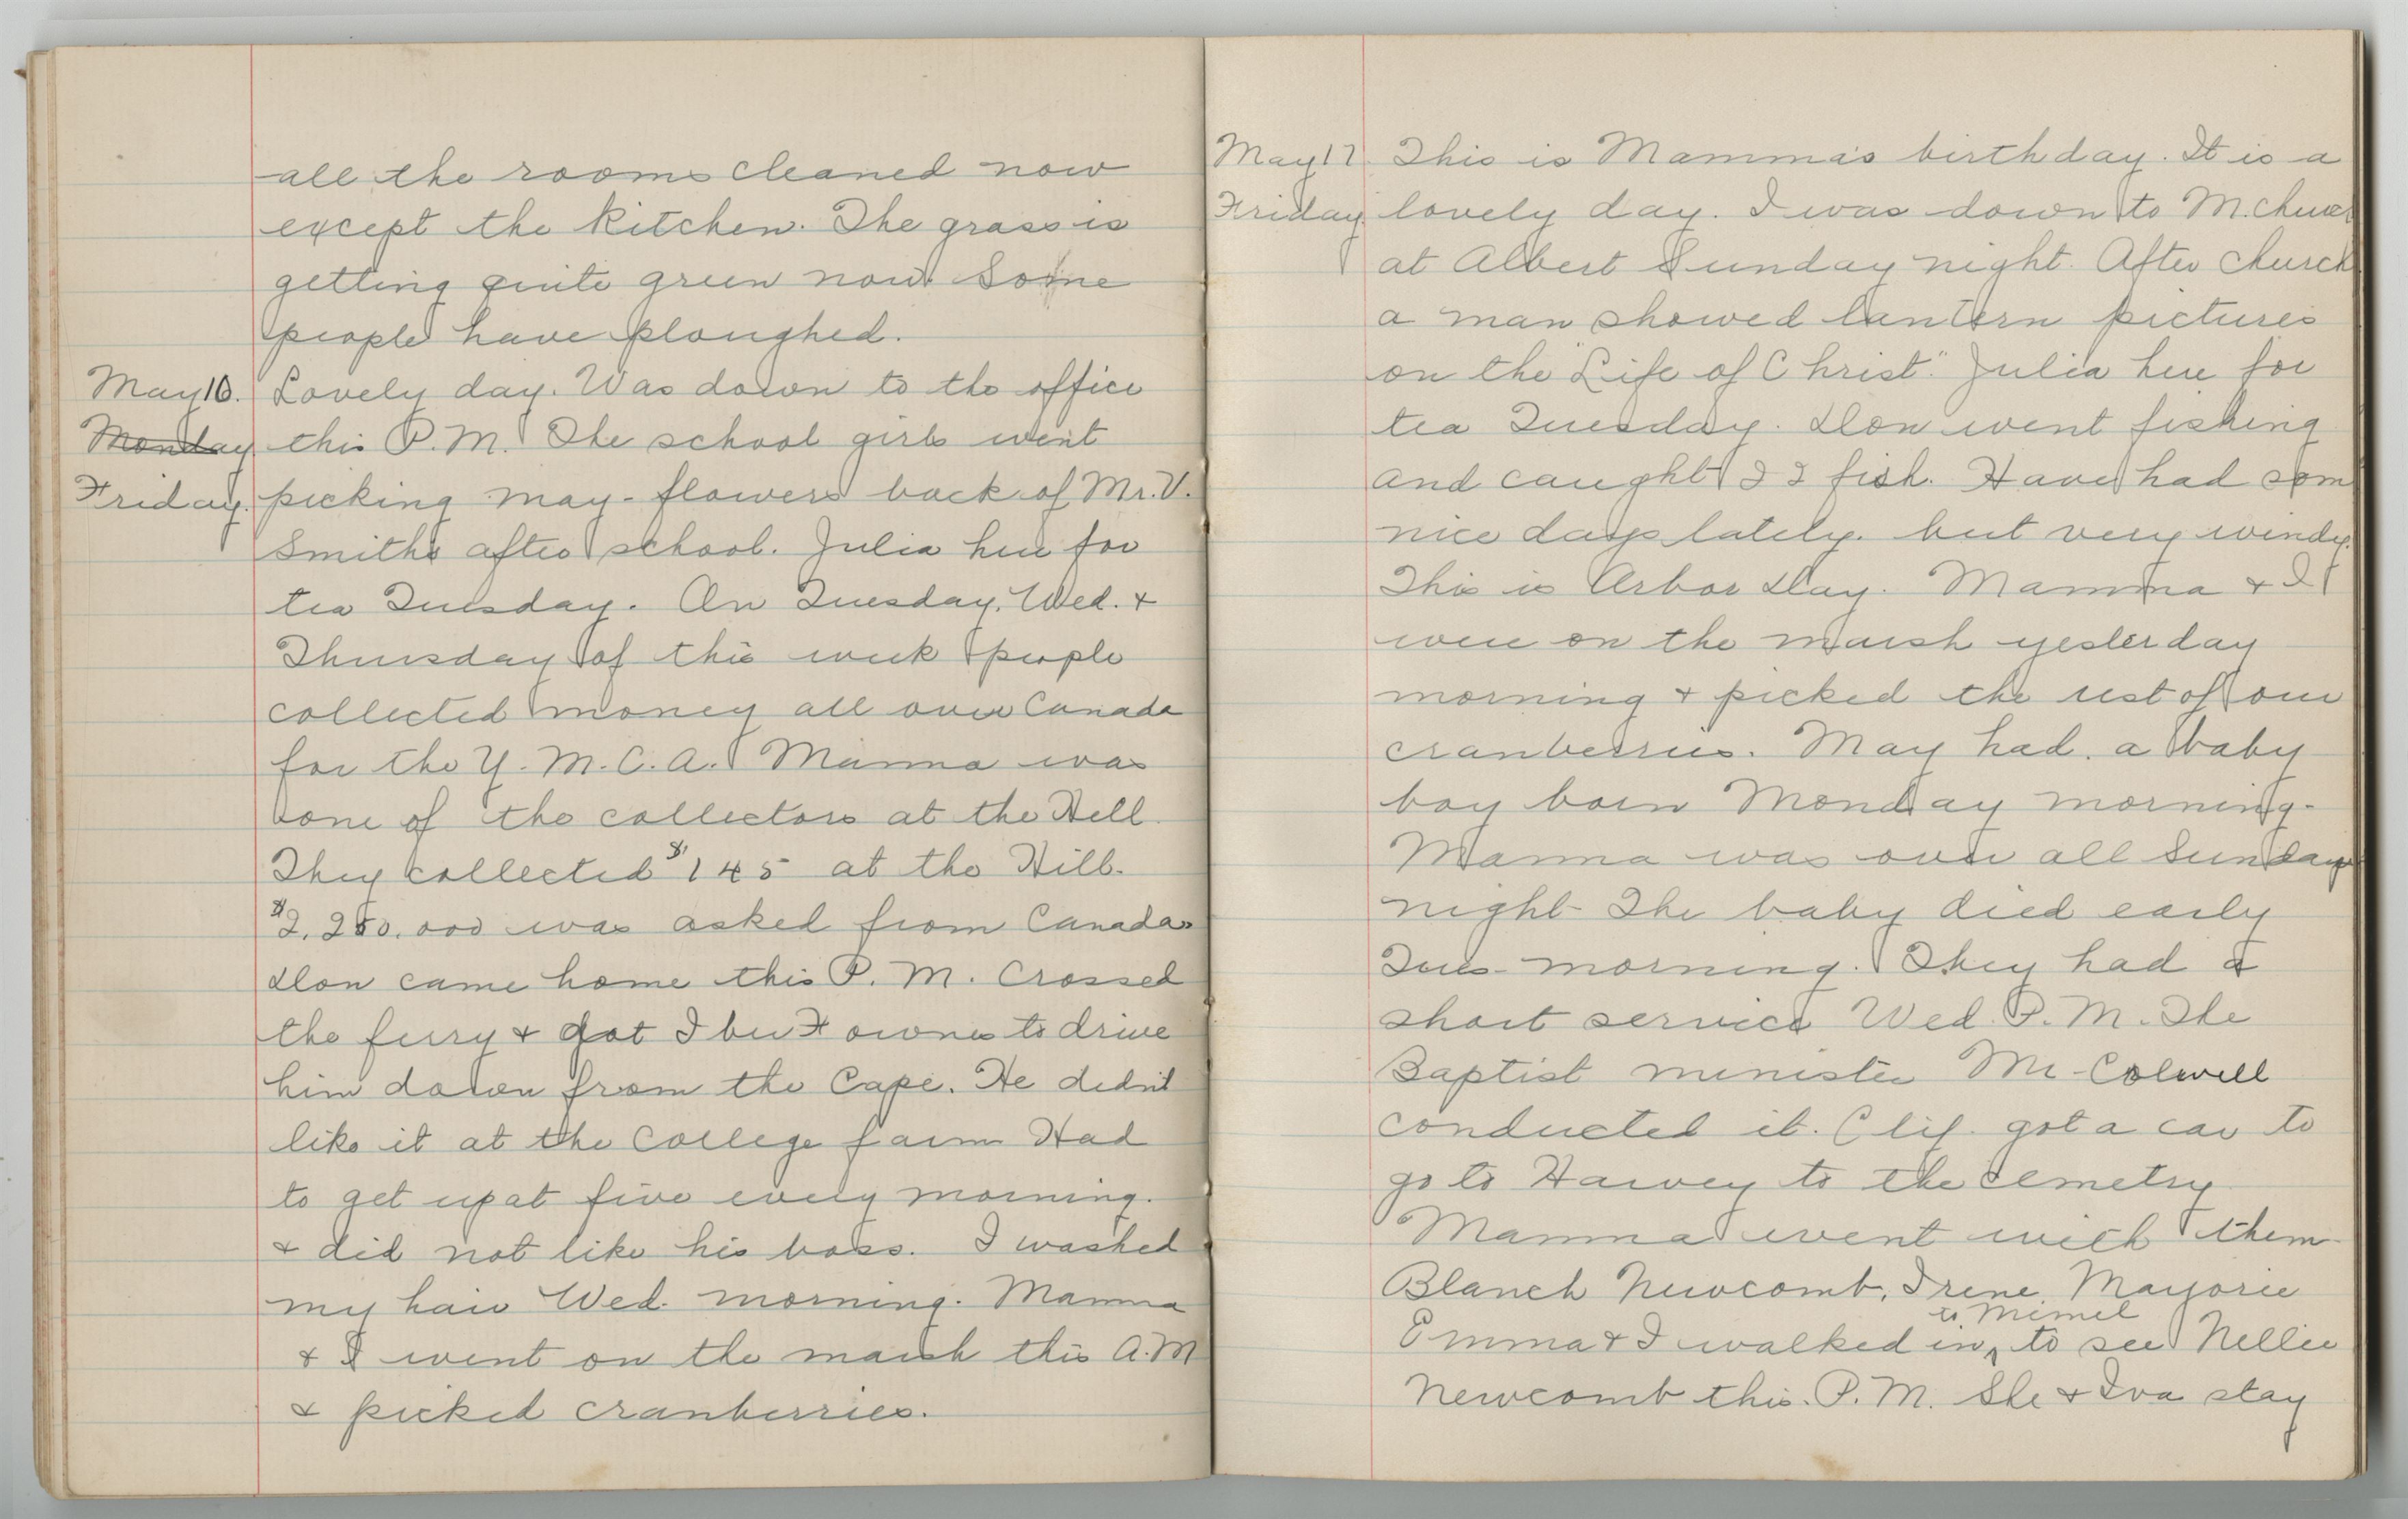 all the rooms cleaned now
except the kitchen. The grass is
getting quite green now. Some
people have ploughed.
May 10. Lovely day. Was down to the office
Monday this P.M. The school girls went
Friday. picking may-flowers back of Mr. V.
Smiths after school. Julia here for
tea Tuesday. On Tuesday, Wed. &
Thursday of this week people
collected money all over Canada
for the Y.M.C.A. Mamma was
one of the collectors at the Hill.
They collected $145 at the Hill.
$2,250,000 was asked from Canada.
Don came home this P.M. Crossed
the ferry & got to drive
him down from the Cape. He didn't
like it at the College farm Had
to get up at five every morning.
& did not like his boss. I washed
my hair Wed. morning. Mamma
& I went on the marsh this A.M
& picked cranberries.
May 17 This is Mamma's birthday. It is a
Friday. lovely day. I was down to M. Church
at Albert Sunday night. After church
a man showed lantern pictures
on the "Life of Christ". Julia here for
tea Tuesday. Don went fishing
and caught 22 fish. Have had som
nice days lately. but very windy.
This is Arbor Day. Mamma & I
were on the marsh yesterday
morning & picked the rest of our
cranberries. May had a baby
boy born Monday morning.
Mamma was over all Sunday
night The baby died early
Tues. morning. They had a
short service Wed. P.M. The
Baptist minister Mr. Colwell
conducted it. Clif. got a car to
go to Harvey to the cemetry
Mamma went with them.
Blanch Newcomb, Irene, Marjorie
Emma & I walked in to Mimel to see Nellie
Newcomb this. P.M. She & Iva stay